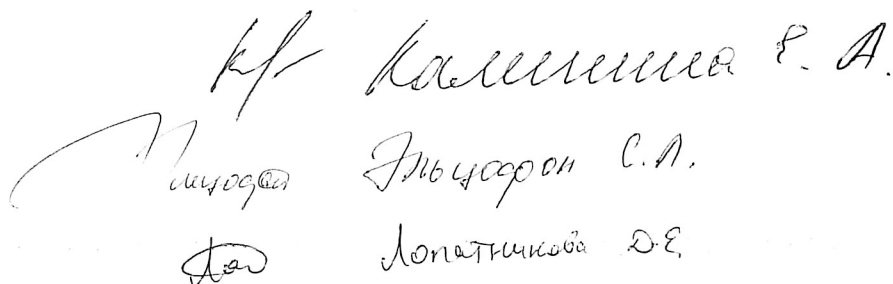 Калинина Е. А.
Эльцофон С. Л.
Лопатникова Д.Е.